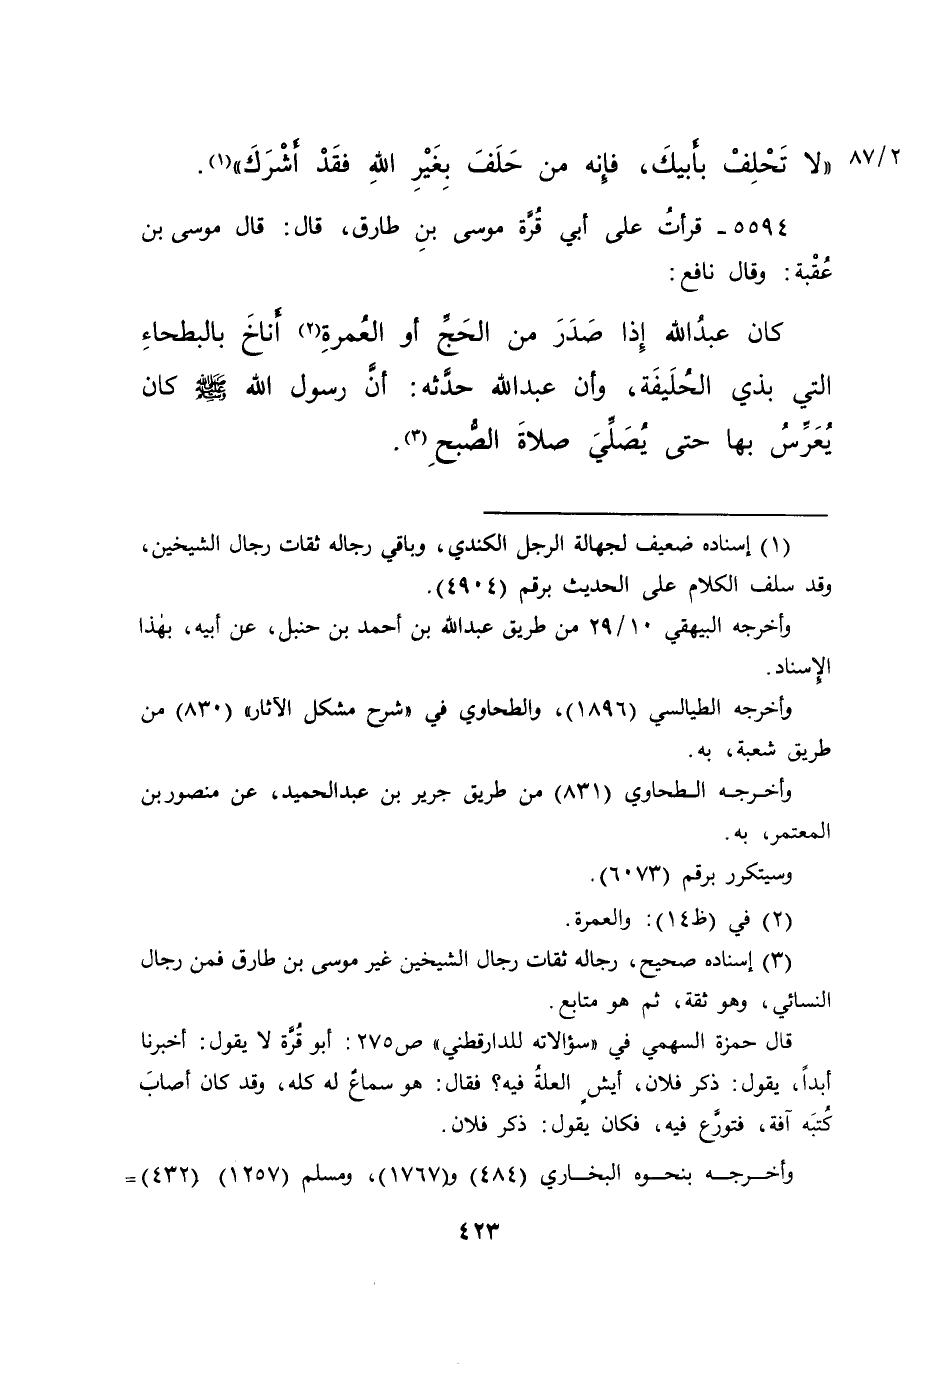 ٨٧/٢ «لا تَحْلِفْ بأَبيكَ، فإنه من حَلَفَ بِغَيْرِ اللهِ فقَدْ أَشْرَكَ»(١).
٥٥٩٤ ـ قرأتُ على أبي قُرَّة موسى بنِ طارق، قال: قال موسى بن
عُقْبة: وقال نافع:
كان عبدُالله إذا صَدَرَ من الحَجِّ أو العُمرةِ(٢) أَناخَ بالبطحاءِ
التي بذي الحُلَيفَة، وأن عبدالله حدَّثه: أنَّ رسول الله ﷺ كان
يُعَرِّسُ بها حتى يُصَلِّيَ صلاةَ الصُّبحِ(٣).
(١) إسناده ضعيف لجهالة الرجل الكندي، وباقي رجاله ثقات رجال الشيخين،
وقد سلف الكلام على الحديث برقم (٤٩٠٤).
وأخرجه البيهقي ٢٩/١٠ من طريق عبدالله بن أحمد بن حنبل، عن أبيه، بهٰذا
الإِسناد.
وأخرجه الطيالسي (١٨٩٦)، والطحاوي في «شرح مشكل الآثار» (٨٣٠) من
طريق شعبة، به.
وأخرجه الطحاوي (٨٣١) من طريق جرير بن عبدالحميد، عن منصور بن
المعتمر، به.
وسيتكرر برقم (٦٠٧٣).
(٢) في (ظ١٤): والعمرة.
(٣) إسناده صحيح، رجاله ثقات رجال الشيخين غير موسى بن طارق فمن رجال
النسائي، وهو ثقة، ثم هو متابع.
قال حمزة السهمي في «سؤالاته للدارقطني» ص٢٧٥: أبو قُرَّة لا يقول: أخبرنا
أبداً، يقول: ذكر فلان، أيشٍ العلةُ فيه؟ فقال: هو سماعٌ له كله، وقد كان أصابَ
كُتبَه آفة، فتورَّع فيه، فكان يقول: ذكر فلان.
وأخرجه بنحوه البخاري (٤٨٤) و(١٧٦٧)، ومسلم (١٢٥٧) (٤٣٢)=
٤٢٣